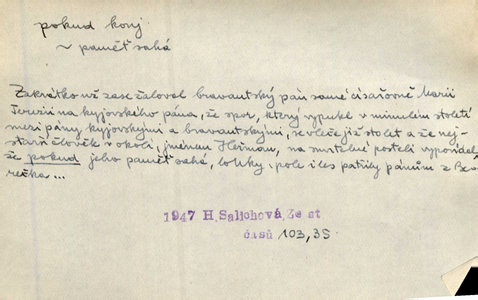 pokud konj.
~ paměť sahá
Zakrátko už zase žaloval bravantský pán samé císařovně Marii
Terezii na kyjovského pána, že spor, který vypukl v minulém století
mezi pány kyjovskými a bravantskými, se vleče již sto let a že nej-
starší člověk v okolí, jménem Heřman, na smrtelné posteli vypovídal,
že pokud jeho paměť sahá, louky, pole i les patřily pánům z Bra
1947 H. Salichová, Ze st.
časů 103, 35